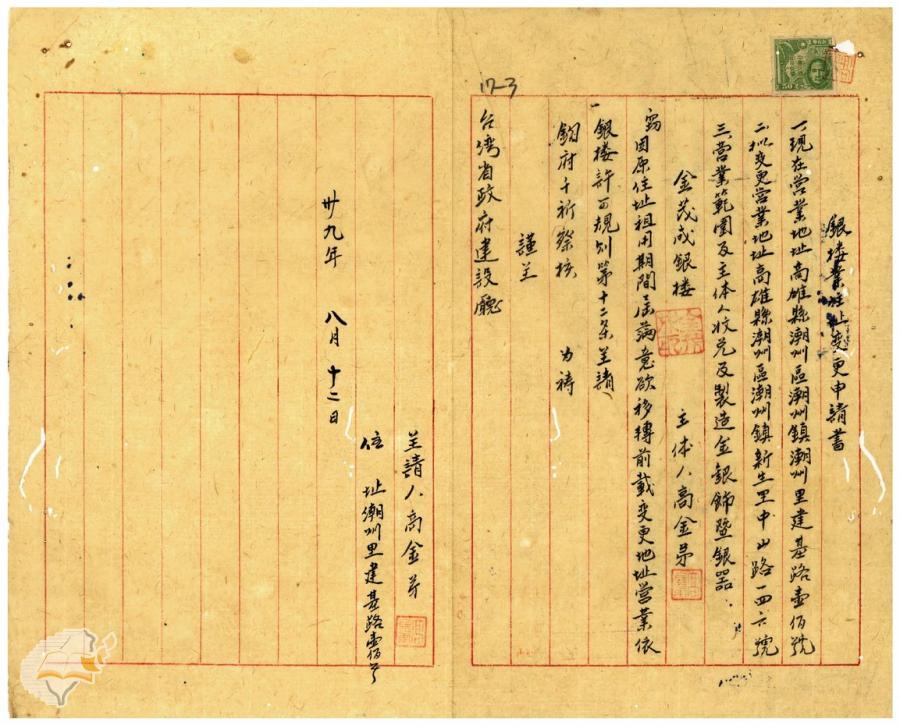 銀楼業住址变更申請書
一、現在営業地址高雄縣潮州區潮州鎮潮州里建基路壹佰號
二、拟变更営業地址高雄縣潮州區潮州鎮新生里中山路一四六號
三、営業範圍及主体人收兑及製造金銀飾暨銀器
金茂成銀楼 主体人高金茅
窃因原住址祖用期間届满意欲移轉前載变更地址営業依
銀楼許可規則第十二条呈請
鈞府千祈詧核 为祷
謹呈
台湾省政府建設廳
17-3
卅九年 八月 十二日
呈請人 高金茅
住 址潮州里建基路壹佰号
50